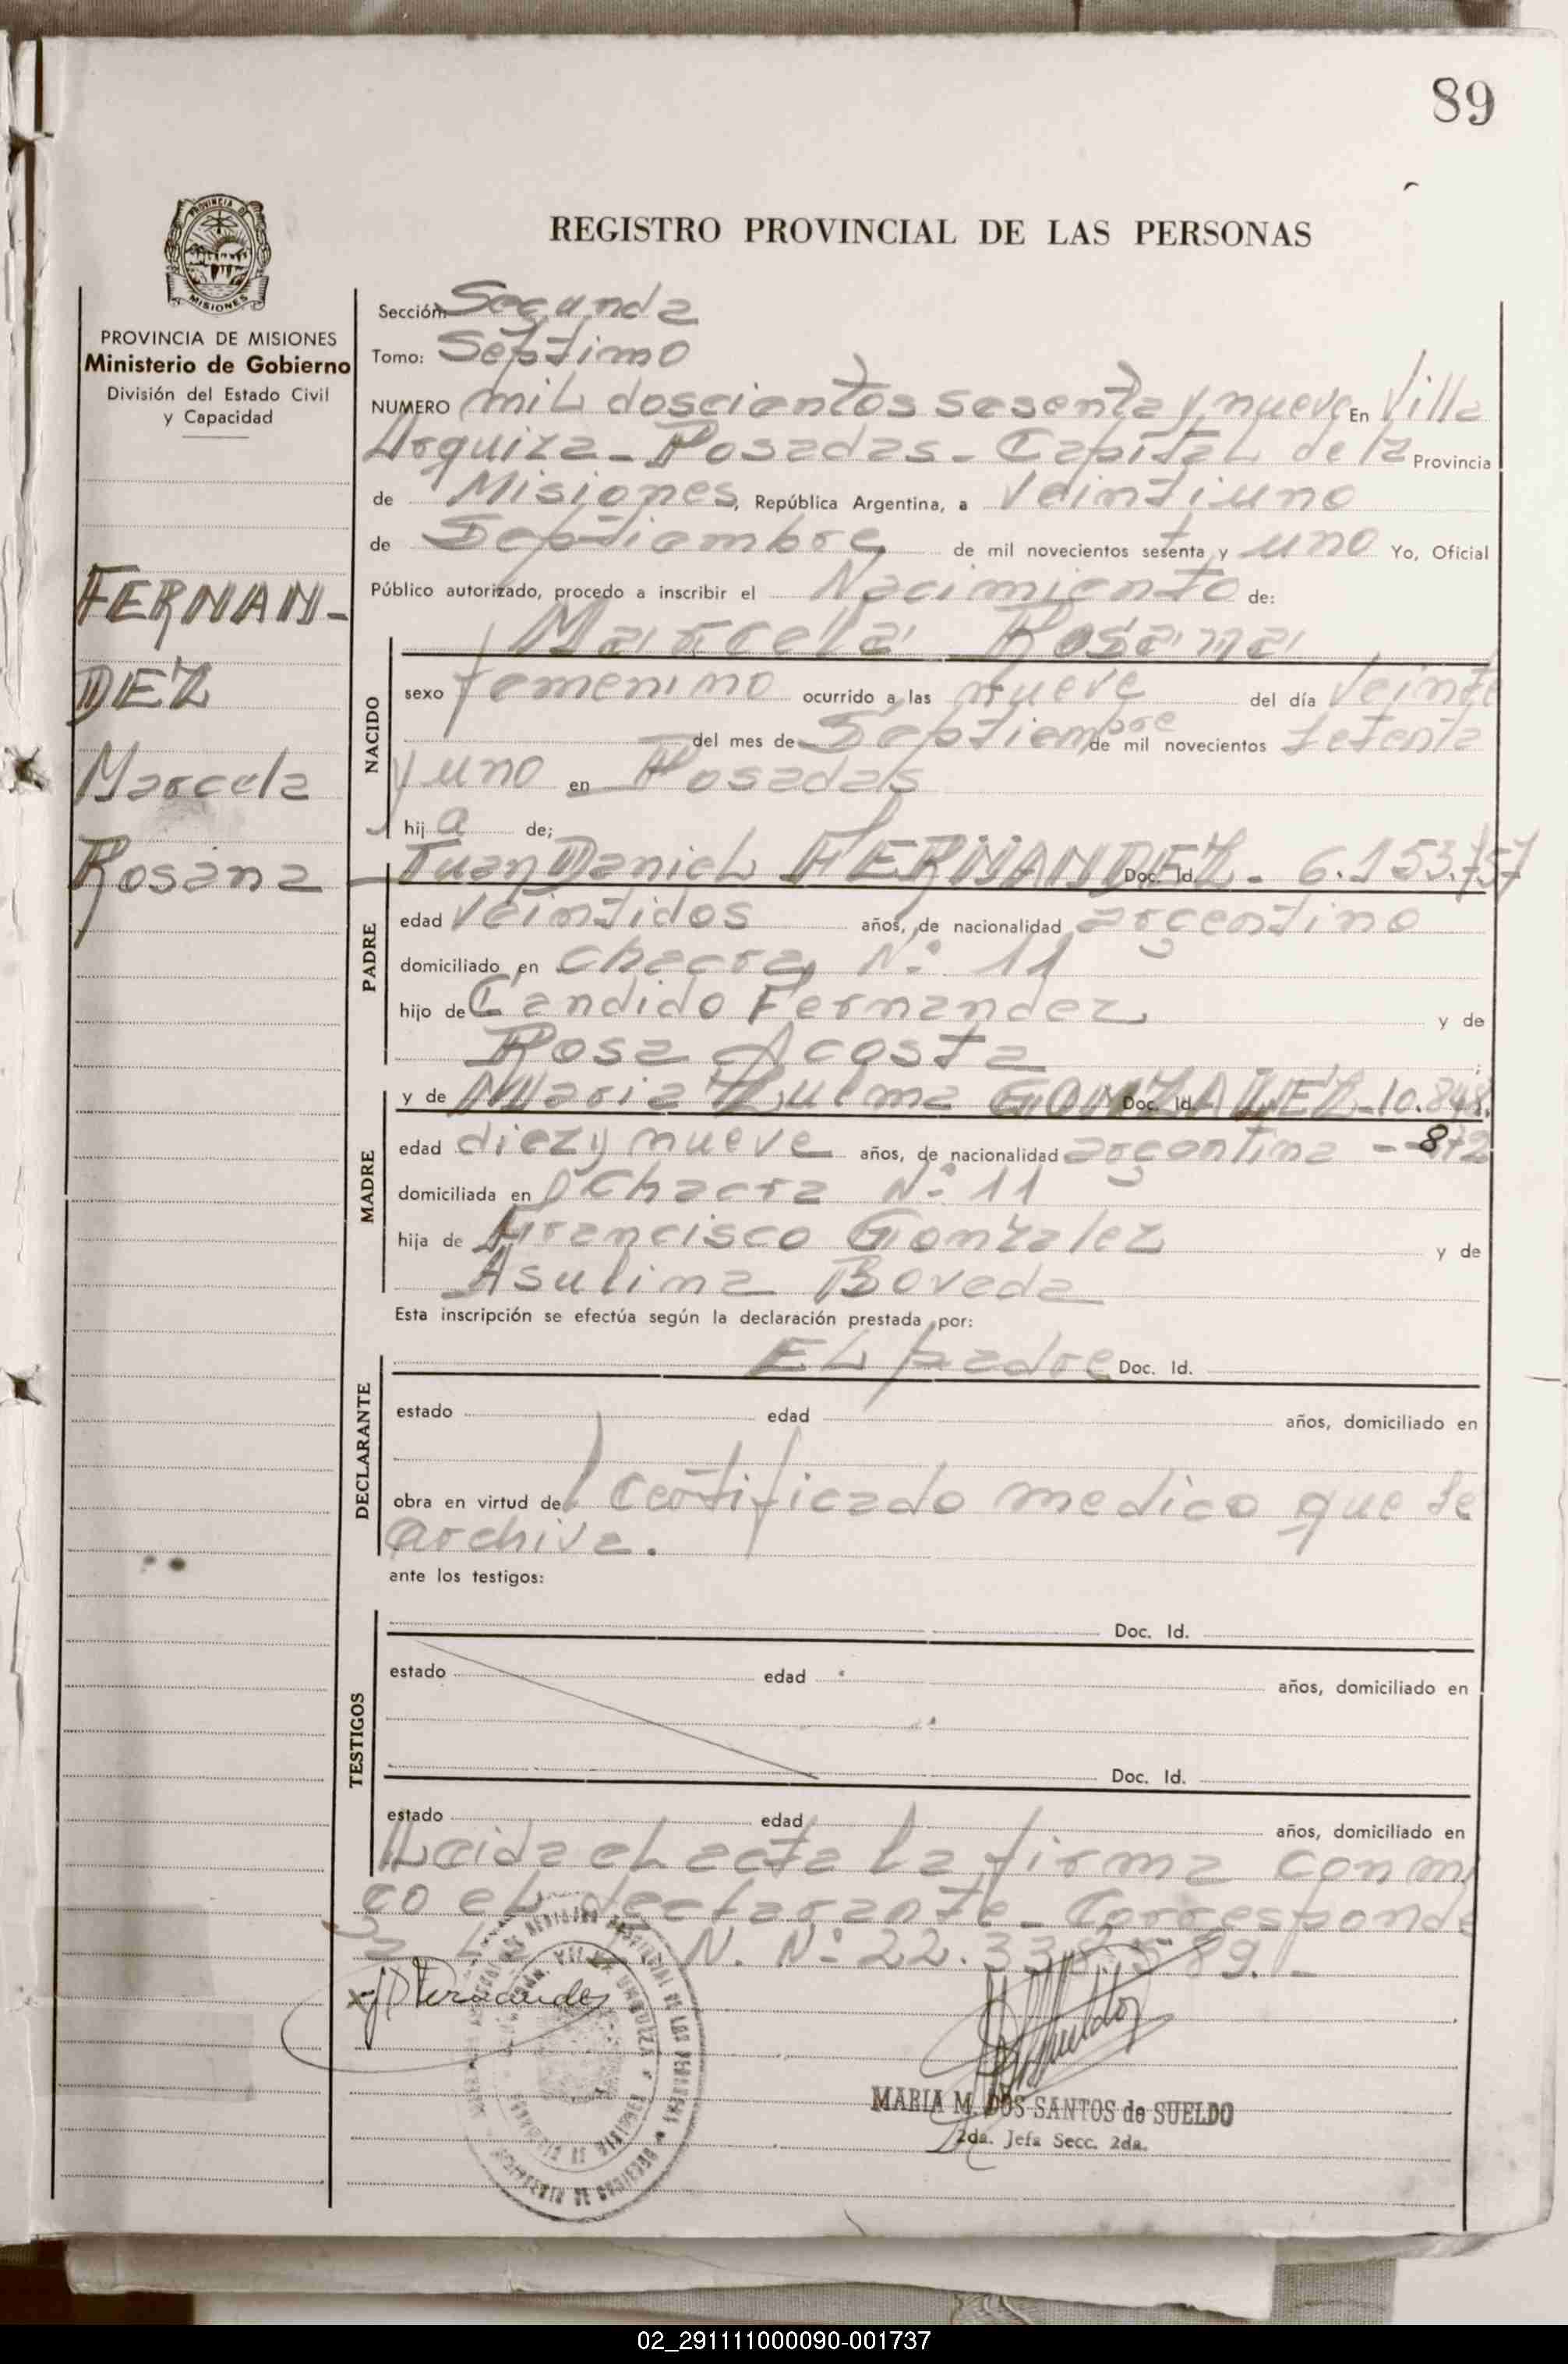 89
REGISTRO PROVINCIAL DE LAS PERSONAS
PROVINCIA DE MISIONES
Ministerio de Gobierno
División del Estado Civil
y Capacidad
FERNAN-
DEZ
Marcela
Rosana
Sección Segunda
Tomo: Septimo
NUMERO mil doscientos sesenta y nueve En Villa
Urquiza - Posadas - Capital de la Provincia
de Misiones, República Argentina, a Veintiuno
de Septiembre de mil novecientos setenta y uno Yo, Oficial
Público autorizado, procedo a inscribir el Nacimiento de:
Marcela Rosana
NACIDO
sexo femenino ocurrido a las nueve del día Veinte
del mes de Septiembre de mil novecientos setenta
y uno en Posadas
hij a de;
Juan Daniel FERNANDEZ - Doc. Id. 6.153.757
PADRE
edad Veintidos años, de nacionalidad argentino
domiciliado en Chacra N° 11
hijo de Candido Fernandez y de
Rosa Acosta
y de Maria Zulma GONZALEZ - Doc. Id. 10.848.
MADRE
edad diez y nueve años, de nacionalidad argentina - - 872
domiciliada en Chacra N° 11
hija de Francisco Gonzalez y de
Asulina Boveda
Esta inscripción se efectúa según la declaración prestada por:
DECLARANTE
EL padre Doc. Id.
estado edad años, domiciliado en
obra en virtud del certificado medico que se
archiva.
ante los testigos:
TESTIGOS
Doc. Id.
estado edad años, domiciliado en
Doc. Id.
estado edad años, domiciliado en
Leida el acta la firma conmi
go el declarante - Corresponde
N. N° 22.338.589.-
JD Fernandez
MARIA M. DOS SANTOS de SUELDO
2da. Jefa Secc. 2da.
02_291111000090-001737